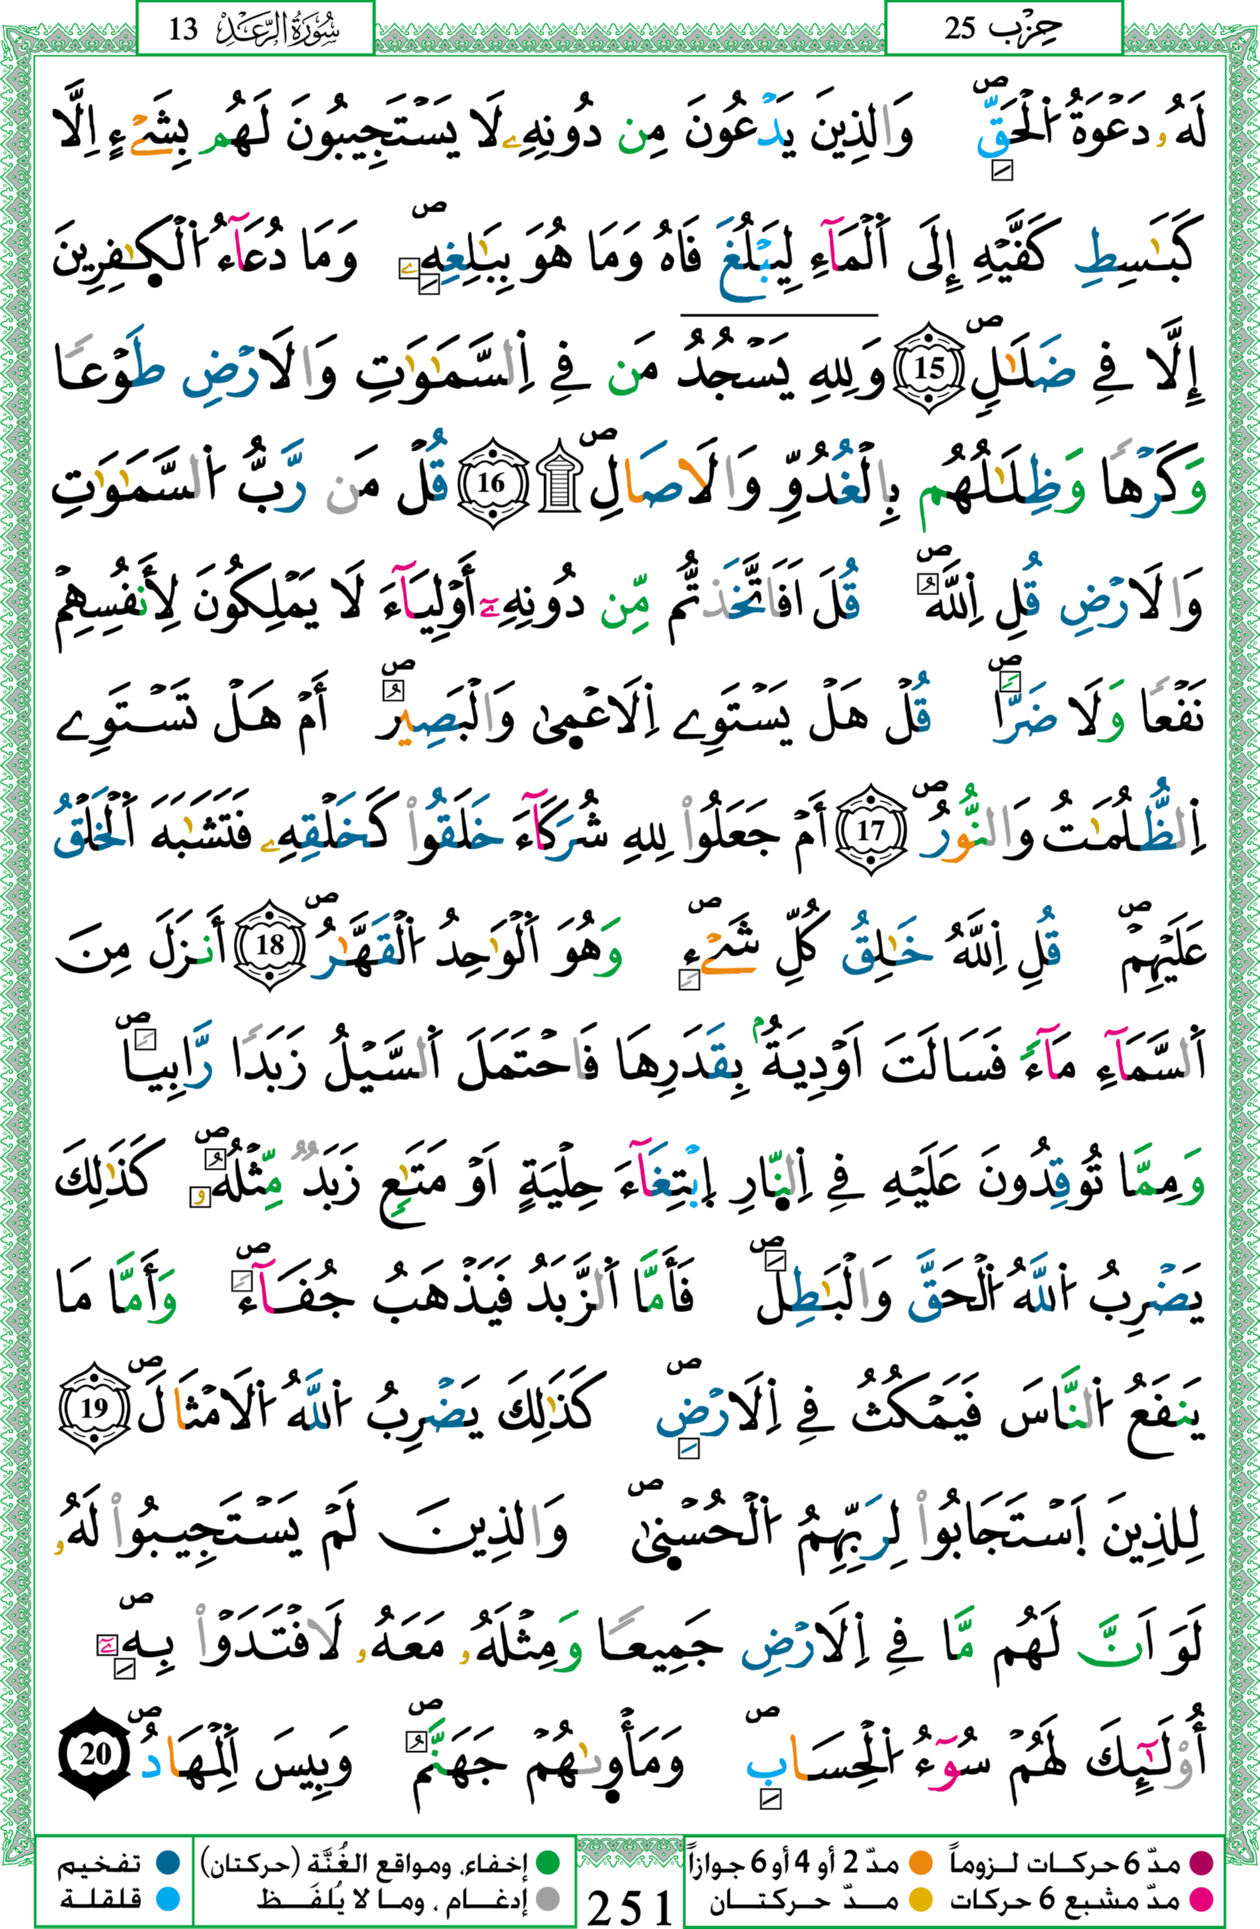 سُورَةُ الرَّعْدِ 13
حِزْب 25
لَهُۥ دَعْوَةُ اُ۬لْحَقِّۖ وَالذِينَ يَدْعُونَ مِن دُونِهِۦ لَا يَسْتَجِيبُونَ لَهُم بِشَےْءٍ اِلَّا
كَبَٰسِطِ كَفَّيْهِ إِلَى اَ۬لْمَآءِ لِيَبْلُغَ فَاهُ وَمَا هُوَ بِبَٰلِغِهِۦۖ وَمَا دُعَآءُ اُ۬لْكٰ۪فِرِينَ
إِلَّا فِے ضَلَٰلٖۖ 15 وَلِلهِ يَسْجُدُ مَن فِے اِ۬لسَّمَٰوَٰتِ وَالَارْضِ طَوْعاٗ
وَكَرْهاٗ وَظِلَٰلُهُم بِالْغُدُوِّ وَالَاصَالِۖ ۩ 16 قُلْ مَن رَّبُّ اُ۬لسَّمَٰوَٰتِ
وَالَارْضِ قُلِ اِ۬للَّهُۖ قُلَ اَفَاتَّخَذتُّم مِّن دُونِهِۦٓ أَوْلِيَآءَ لَا يَمْلِكُونَ لِأَنفُسِهِمْ
نَفْعاٗ وَلَا ضَرّاٗۖ قُلْ هَلْ يَسْتَوِے اِ۬لَاعْم۪ىٰ وَالْبَصِيرُۖ أَمْ هَلْ تَسْتَوِے
اِ۬لظُّلُمَٰتُ وَالنُّورُۖ 17 أَمْ جَعَلُواْ لِلهِ شُرَكَآءَ خَلَقُواْ كَخَلْقِهِۦ فَتَشَٰبَهَ اَ۬لْخَلْقُ
عَلَيْهِمْۖ قُلِ اِ۬للَّهُ خَٰلِقُ كُلِّ شَےْءٖۖ وَهُوَ اَ۬لْوَٰحِدُ اُ۬لْقَهَّٰرُۖ 18 أَنزَلَ مِنَ
اَ۬لسَّمَآءِ مَآءٗ فَسَالَتَ اَوْدِيَةُۢ بِقَدَرِهَا فَاحْتَمَلَ اَ۬لسَّيْلُ زَبَداٗ رَّابِياٗۖ
وَمِمَّا تُوقِدُونَ عَلَيْهِ فِے اِ۬لنّ۪ارِ اِ۪بْتِغَآءَ حِلْيَةٍ اَوْ مَتَٰعٖ زَبَدٞ مِّثْلُهُۥۖ كَذَٰلِكَ
يَضْرِبُ اُ۬للَّهُ اُ۬لْحَقَّ وَالْبَٰطِلَۖ فَأَمَّا اَ۬لزَّبَدُ فَيَذْهَبُ جُفَآءٗۖ وَأَمَّا مَا
يَنفَعُ اُ۬لنَّاسَ فَيَمْكُثُ فِے اِ۬لَارْضِۖ كَذَٰلِكَ يَضْرِبُ اُ۬للَّهُ اُ۬لَامْثَالَۖ 19
لِلذِينَ اَ۪سْتَجَابُواْ لِرَبِّهِمُ اُ۬لْحُسْن۪ىٰۖ وَالذِينَ لَمْ يَسْتَجِيبُواْ لَهُۥ
لَوَ اَنَّ لَهُم مَّا فِے اِ۬لَارْضِ جَمِيعاٗ وَمِثْلَهُۥ مَعَهُۥ لَافْتَدَوْاْ بِهِۦٓۖ
أُوْلَٰٓئِكَ لَهُمْ سُوٓءُ اُ۬لْحِسَابِۖ وَمَأْو۪يٰهُمْ جَهَنَّمُۖ وَبِيسَ اَ۬لْمِهَادُۖ 20
مدّ 6 حركات لـزوماً مدّ 2 أو 4 أو 6 جوازاً
مدّ مشبع 6 حركات مـدّ حركتـان
251
إخفاء، ومواقع الغُنَّة (حركتان) تفخيم
إدغـام ، ومـا لا يُلفَـظ قلقلة